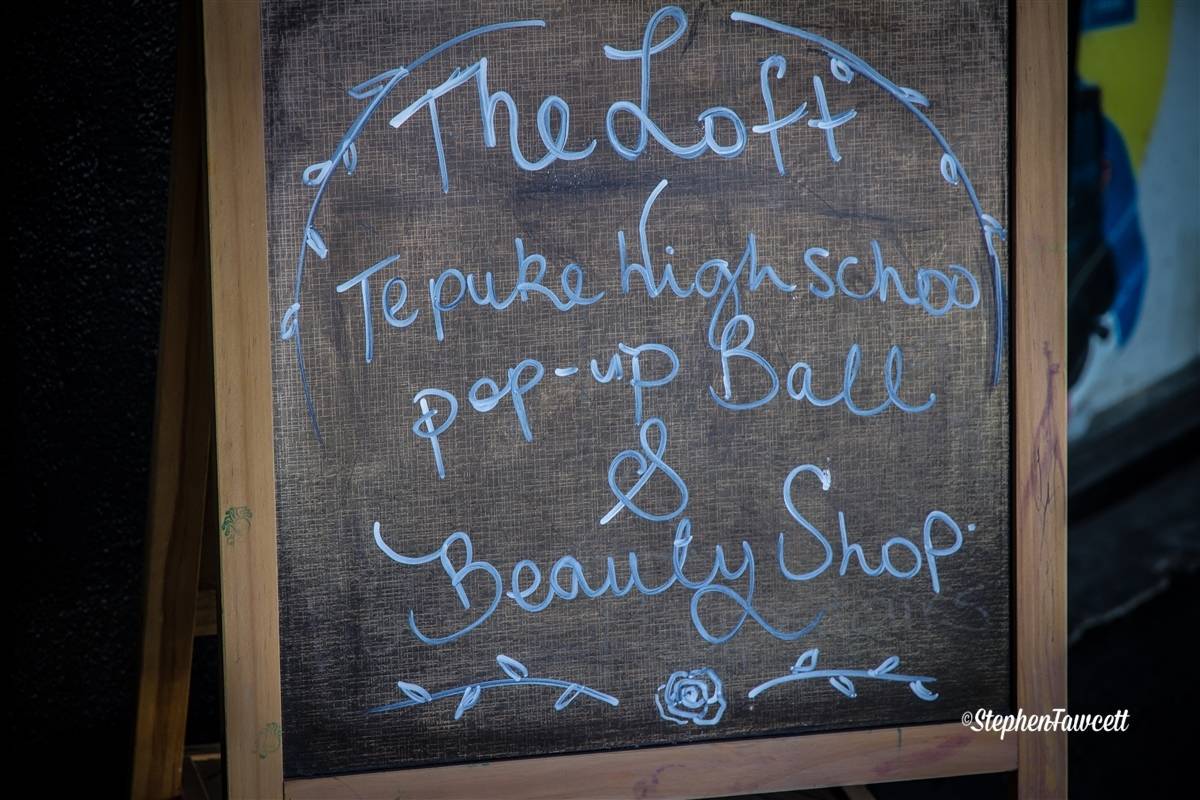 The Loft
Tepuke High schoo
pop-up Ball
&
Beauty Shop.
©StephenFawcett